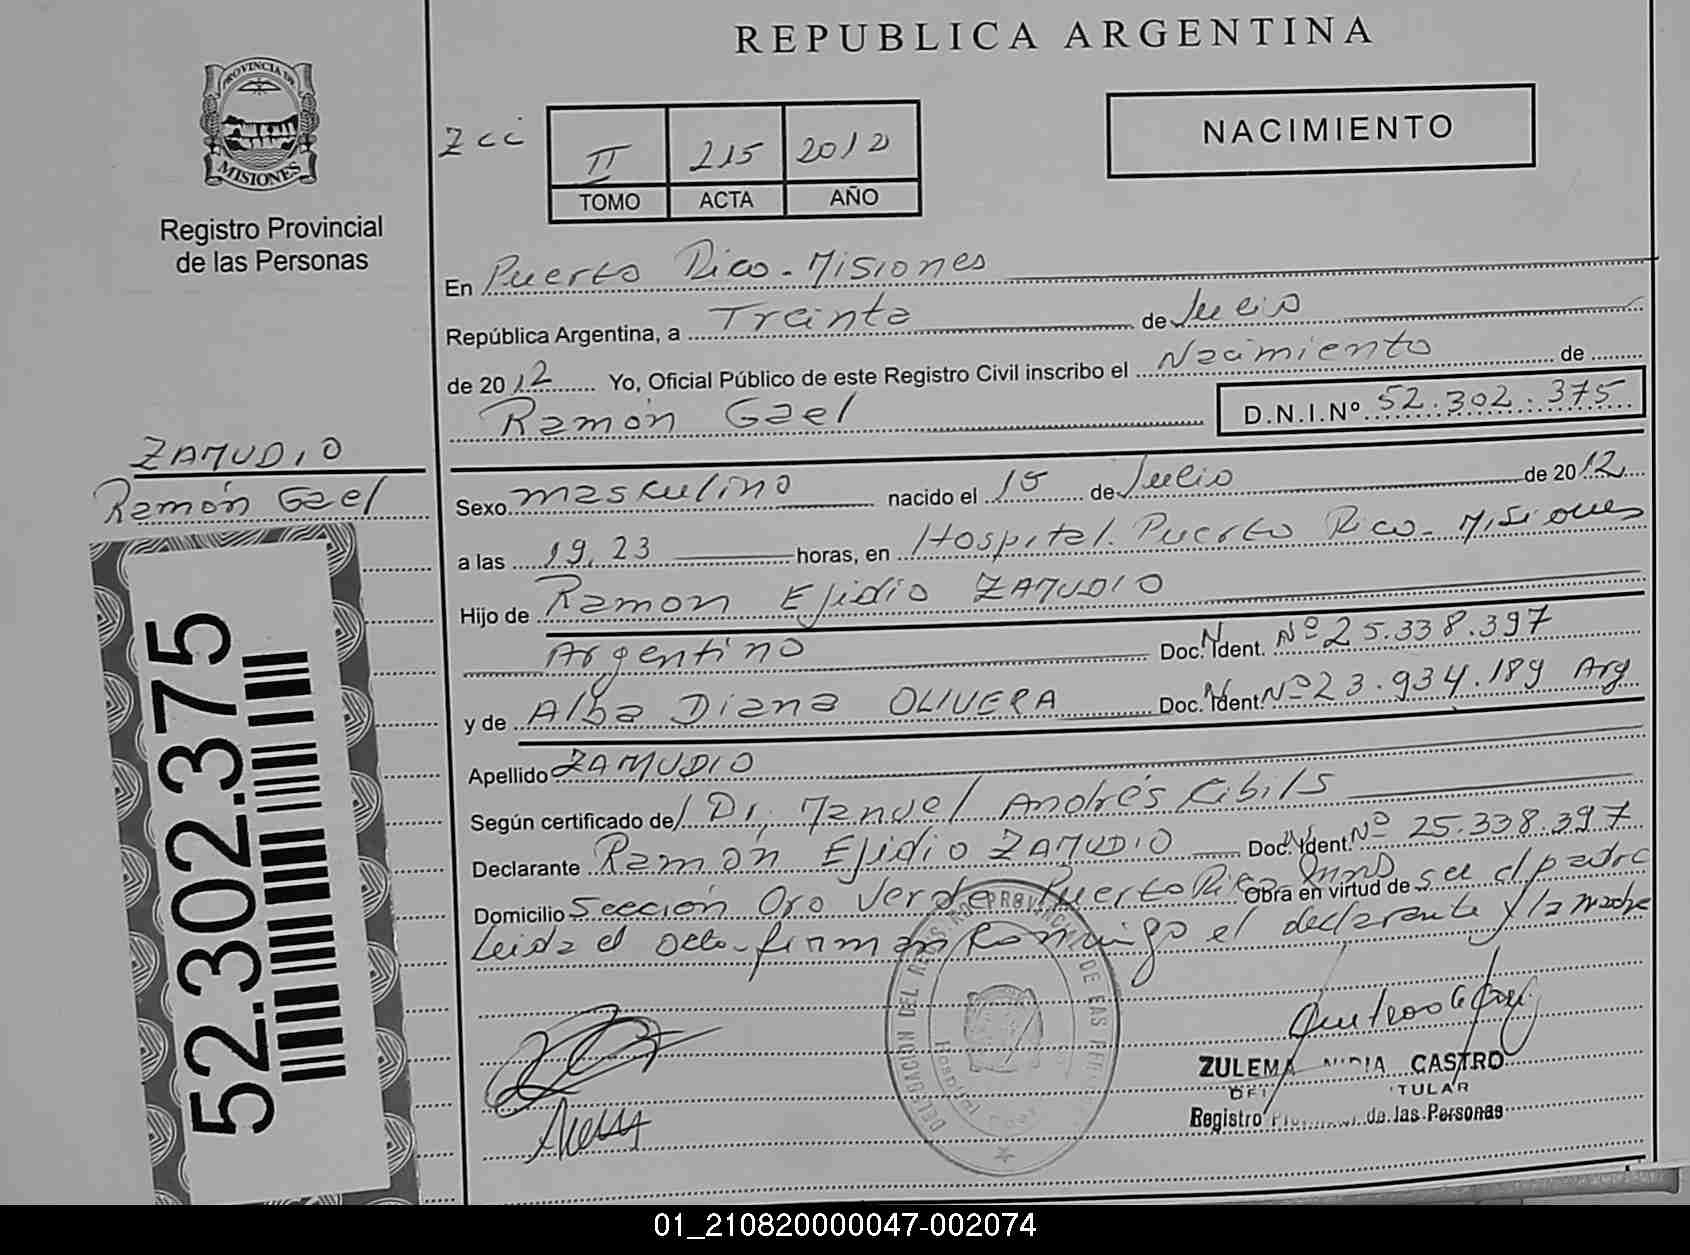 REPUBLICA ARGENTINA
PROVINCIA DE
MISIONES
Registro Provincial
de las Personas
Zci
II 215 2012
TOMO ACTA AÑO
NACIMIENTO
En Puerto Rico - Misiones
República Argentina, a Treinta de Julio
de 2012 Yo, Oficial Público de este Registro Civil inscribo el Nacimiento de
Ramón Gael D.N.I.Nº 52.302.375
ZAMUDIO
Ramón Gael
Sexo masculino nacido el 15 de Julio de 2012
a las 19,23 horas, en Hospital. Puerto Rico - Misiones
Hijo de Ramon Ejidio ZAMUDIO
Argentino Doc. Ident. Nº 25.338.397
y de Alba Diana OLIVERA Doc. Ident. Nº 23.934.189 Arg
Apellido ZAMUDIO
Según certificado de/ Dr. Manuel Andrés Kibils
Declarante Ramón Ejidio ZAMUDIO Doc. Ident. Nº 25.338.397
Domicilio Sección Oro Verde Puerto Rico Mnes Obra en virtud de ser el padre
Leida el acta - firman conmigo el declarante y la madre
52.302.375
DELEGACION DEL
DE LAS
ZULEMA CASTRO
TULAR
Registro de las Personas
01_210820000047-002074